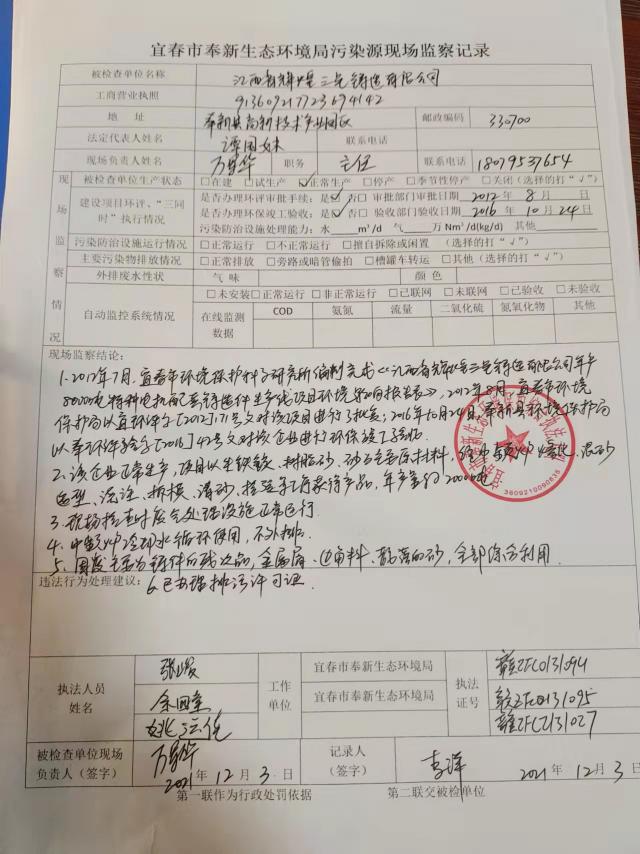 宜春市奉新生态环境局污染源现场监察记录
被检查单位名称 江西省辉煌三完铸造有限公司
工商营业执照 913609217723694142
地 址 奉新县高新技术产业园区 邮政编码 330700
法定代表人姓名 谭国妹 联系电话
现场负责人姓名 职务 主任 联系电话 18079537654
现场监察情况
被检查单位生产状态 □在建 □试生产 ☑正常生产 □停产 □季节性停产 □关闭(选择的打“√”)
建设项目环评、“三同时”执行情况
是否办理环评审批手续:是☑ 否□ 审批部门审批日期 2012 年 8 月 日
是否办理环保竣工验收:是☑ 否□ 验收部门验收日期 2016 年 10 月 24 日
污染防治设施处理能力:水 m³/d 气 万 Nm³/d(kg/d) (其他)
污染防治设施运行情况 □正常运行 □不正常运行 □擅自拆除或闲置 (选择的打“√”)
主要污染物排放情况 □正常排放 □旁路或暗管偷排 □槽罐车转运 □其他(选择的打“√”)
外排废水性状 气 味 颜 色
自动监控系统情况 □未安装□正常运行 □非正常运行 □已联网 □未联网 □已验收 □未验收
在线监测数据 COD 氨氮 流量 二氧化硫 氮氧化物 其他
现场监察结论:
1.2012年7月,宜春市环境保护科学研究所编制完成《江西省辉煌三完铸造有限公司年产
80000吨特种电机配套铸造件生产线项目环境影响报告表》,2012年8月,宜春市环境
保护局以宜环评字[2012]171号文对该项目进行了批复;2016年10月24日,奉新县环境保护局
以奉环评验字[2016]47号文对该企业进行环保竣工验收
2、该企业正常生产,项目以生铁锭、树脂砂、砂为主要原材料,经中频炉熔化、混砂
造型、浇注、拆模、清砂、等工序获得产品,年产量约20000吨
3.现场检查时废气处理设施正常运行
4.中频炉冷却水循环使用,不外排
5.固废主要为铸件的残次品,金属屑、边角料、散落的砂,全部综合利用.
违法行为处理建议: 6.已办理排污许可证
3609210090835
执法人员姓名 工作单位 宜春市奉新生态环境局 执法证号 赣ZFC0131094
余国 宜春市奉新生态环境局 赣ZFC0131095
姚 赣ZFCZ131027
被检查单位现场负责人(签字) 2021 年 12 月 3 日
记录人(签字) 李 2021 年 12 月 3 日
第一联作为行政处罚依据 第二联交被检单位